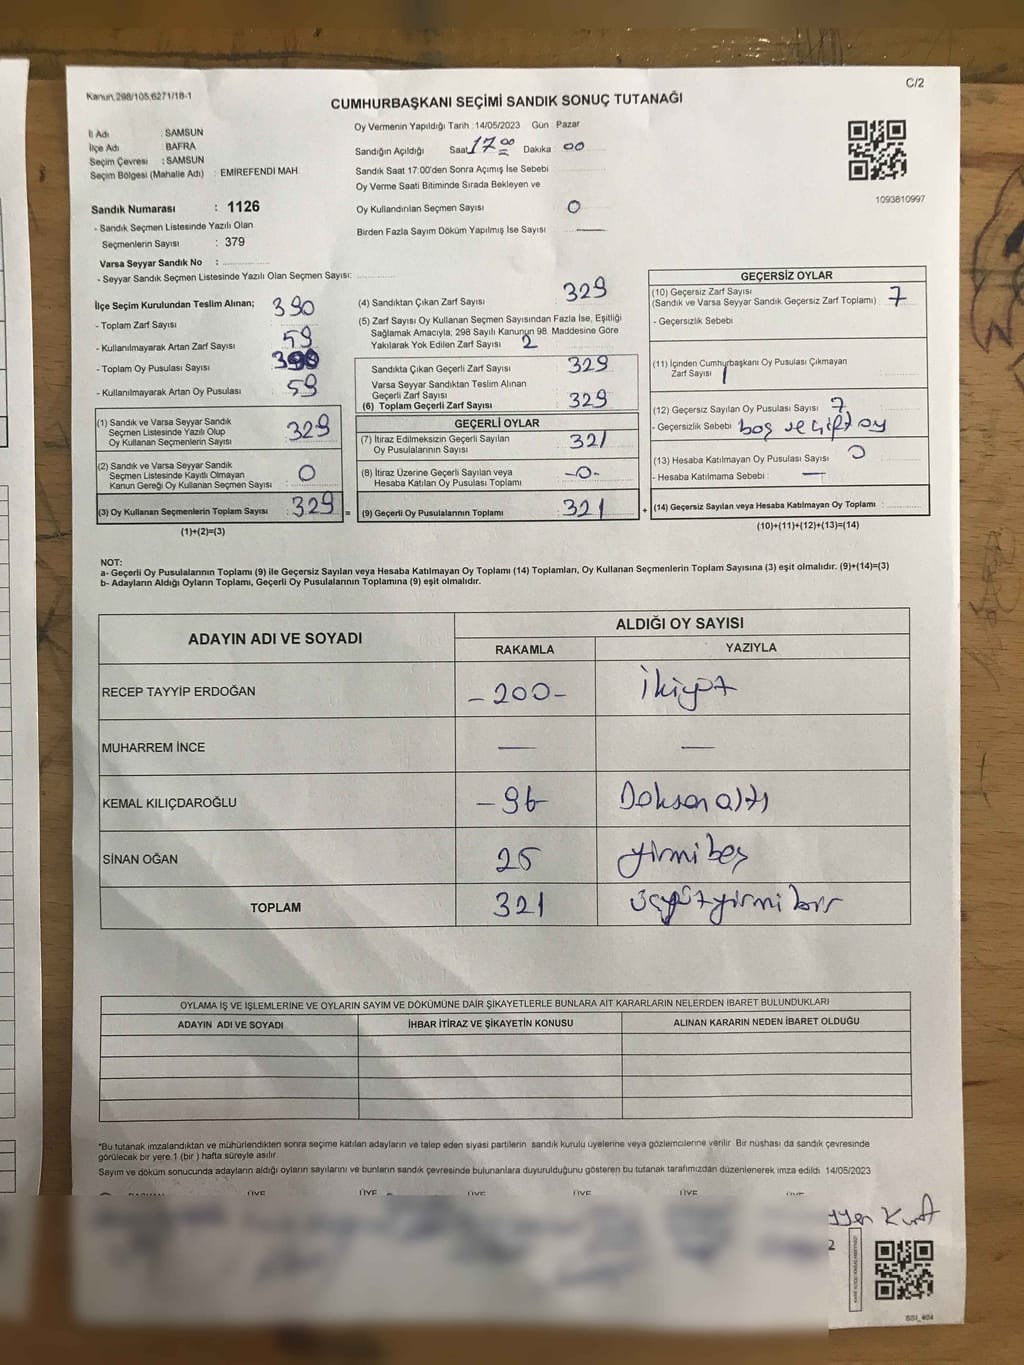 Kanun, 298/105,6271/18-1
C/2
CUMHURBAŞKANI SEÇİMİ SANDIK SONUÇ TUTANAĞI
İl Adı : SAMSUN
İlçe Adı : BAFRA
Seçim Çevresi : SAMSUN
Seçim Bölgesi (Mahalle Adı) : EMİREFENDİ MAH.
Sandık Numarası : 1126
- Sandık Seçmen Listesinde Yazılı Olan
Seçmenlerin Sayısı : 379
Varsa Seyyar Sandık No :
- Seyyar Sandık Seçmen Listesinde Yazılı Olan Seçmen Sayısı:
Oy Vermenin Yapıldığı Tarih : 14/05/2023 Gün : Pazar
Sandığın Açıldığı Saat 17.00 Dakika 00
Sandık Saat 17:00'den Sonra Açımış İse Sebebi
Oy Verme Saati Bitiminde Sırada Bekleyen ve
Oy Kullandırılan Seçmen Sayısı 0
Birden Fazla Sayım Döküm Yapılmış İse Sayısı —
1093810997
İlçe Seçim Kurulundan Teslim Alınan; 390
- Toplam Zarf Sayısı
- Kullanılmayarak Artan Zarf Sayısı 59
- Toplam Oy Pusulası Sayısı 390
- Kullanılmayarak Artan Oy Pusulası 59
(1) Sandık ve Varsa Seyyar Sandık
Seçmen Listesinde Yazılı Olup
Oy Kullanan Seçmenlerin Sayısı : 329
(2) Sandık ve Varsa Seyyar Sandık
Seçmen Listesinde Kayıtlı Olmayan
Kanun Gereği Oy Kullanan Seçmen Sayısı : 0
(3) Oy Kullanan Seçmenlerin Toplam Sayısı : 329 =
(1)+(2)=(3)
(4) Sandıktan Çıkan Zarf Sayısı 329
(5) Zarf Sayısı Oy Kullanan Seçmen Sayısından Fazla İse, Eşitliği
Sağlamak Amacıyla; 298 Sayılı Kanunun 98. Maddesine Göre
Yakılarak Yok Edilen Zarf Sayısı 2
Sandıkta Çıkan Geçerli Zarf Sayısı 329
Varsa Seyyar Sandıktan Teslim Alınan
Geçerli Zarf Sayısı
(6) Toplam Geçerli Zarf Sayısı 329
GEÇERLİ OYLAR
(7) İtiraz Edilmeksizin Geçerli Sayılan
Oy Pusulalarının Sayısı 321
(8) İtiraz Üzerine Geçerli Sayılan veya
Hesaba Katılan Oy Pusulası Toplamı -0-
(9) Geçerli Oy Pusulalarının Toplamı 321 +
GEÇERSİZ OYLAR
(10) Geçersiz Zarf Sayısı
(Sandık ve Varsa Seyyar Sandık Geçersiz Zarf Toplamı) 7
- Geçersizlik Sebebi
(11) İçinden Cumhurbaşkanı Oy Pusulası Çıkmayan
Zarf Sayısı 1
(12) Geçersiz Sayılan Oy Pusulası Sayısı 7
- Geçersizlik Sebebi boş ve çift oy
(13) Hesaba Katılmayan Oy Pusulası Sayısı 0
- Hesaba Katılmama Sebebi : —
(14) Geçersiz Sayılan veya Hesaba Katılmayan Oy Toplamı :
(10)+(11)+(12)+(13)=(14)
NOT:
a- Geçerli Oy Pusulalarının Toplamı (9) ile Geçersiz Sayılan veya Hesaba Katılmayan Oy Toplamı (14) Toplamları, Oy Kullanan Seçmenlerin Toplam Sayısına (3) eşit olmalıdır. (9)+(14)=(3)
b- Adayların Aldığı Oyların Toplamı, Geçerli Oy Pusulalarının Toplamına (9) eşit olmalıdır.
ADAYIN ADI VE SOYADI
ALDIĞI OY SAYISI
RAKAMLA YAZIYLA
RECEP TAYYİP ERDOĞAN -200- İkiyüz
MUHARREM İNCE — —
KEMAL KILIÇDAROĞLU -96- Doksan altı
SİNAN OĞAN 25 yirmi beş
TOPLAM 321 üçyüzyirmi bir
OYLAMA İŞ VE İŞLEMLERİNE VE OYLARIN SAYIM VE DÖKÜMÜNE DAİR ŞİKAYETLERLE BUNLARA AİT KARARLARIN NELERDEN İBARET BULUNDUKLARI
ADAYIN ADI VE SOYADI İHBAR İTİRAZ VE ŞİKAYETİN KONUSU ALINAN KARARIN NEDEN İBARET OLDUĞU
*Bu tutanak imzalandıktan ve mühürlendikten sonra seçime katılan adayların ve talep eden siyasi partilerin sandık kurulu üyelerine veya gözlemcilerine verilir. Bir nüshası da sandık çevresinde
görülecek bir yere 1 (bir ) hafta süreyle asılır.
Sayım ve döküm sonucunda adayların aldığı oyların sayılarını ve bunların sandık çevresinde bulunanlara duyurulduğunu gösteren bu tutanak tarafımızdan düzenlenerek imza edildi. 14/05/2023
ÜYE ÜYE ÜYE ÜYE ÜYE
Kurt
2
SSI_404